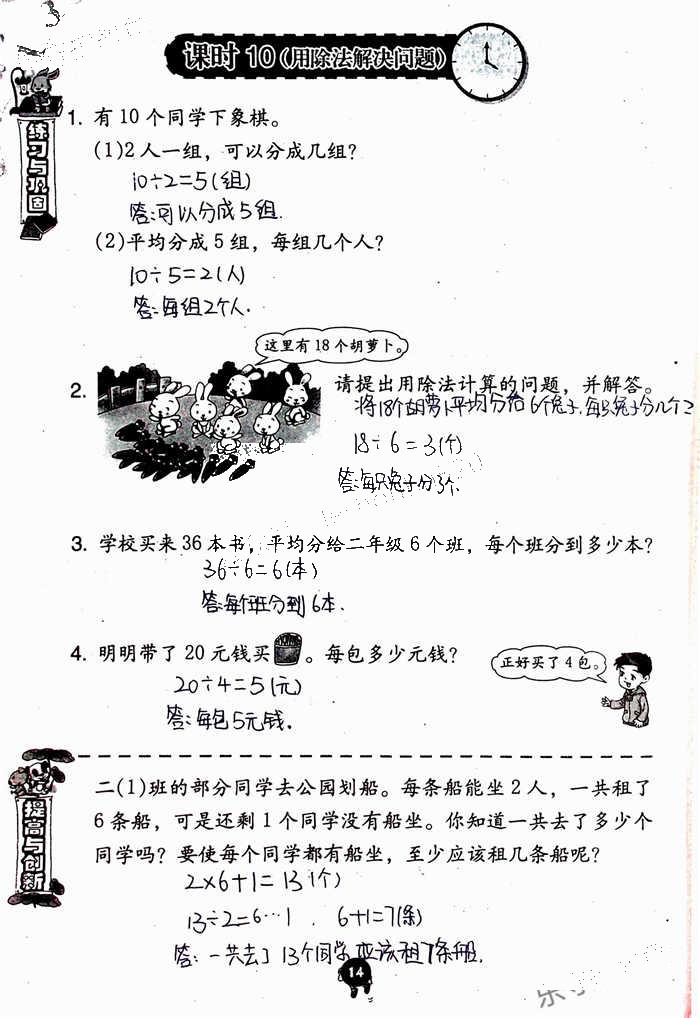 课时10(用除法解决问题)
练习与巩固
1. 有10个同学下象棋。
(1)2人一组，可以分成几组？
10÷2=5(组)
答:可以分成5组.
(2)平均分成5组，每组几个人？
10÷5=2(人)
答:每组2个人.
这里有18个胡萝卜。
2.
请提出用除法计算的问题，并解答。
将18个胡萝卜平均分给6个兔子,每只兔子分几个?
18÷6=3(个)
答:每只兔子分3个.
3. 学校买来36本书，平均分给二年级6个班，每个班分到多少本？
36÷6=6(本)
答:每个班分到6本.
4. 明明带了20元钱买 。每包多少元钱？
正好买了4包。
20÷4=5(元)
答:每包5元钱.
提高与创新
二(1)班的部分同学去公园划船。每条船能坐2人，一共租了
6条船，可是还剩1个同学没有船坐。你知道一共去了多少个
同学吗？要使每个同学都有船坐，至少应该租几条船呢？
2×6+1=13(个)
13÷2=6…1 . 6+1=7(条)
答:一共去了13个同学,应该租7条船.
14